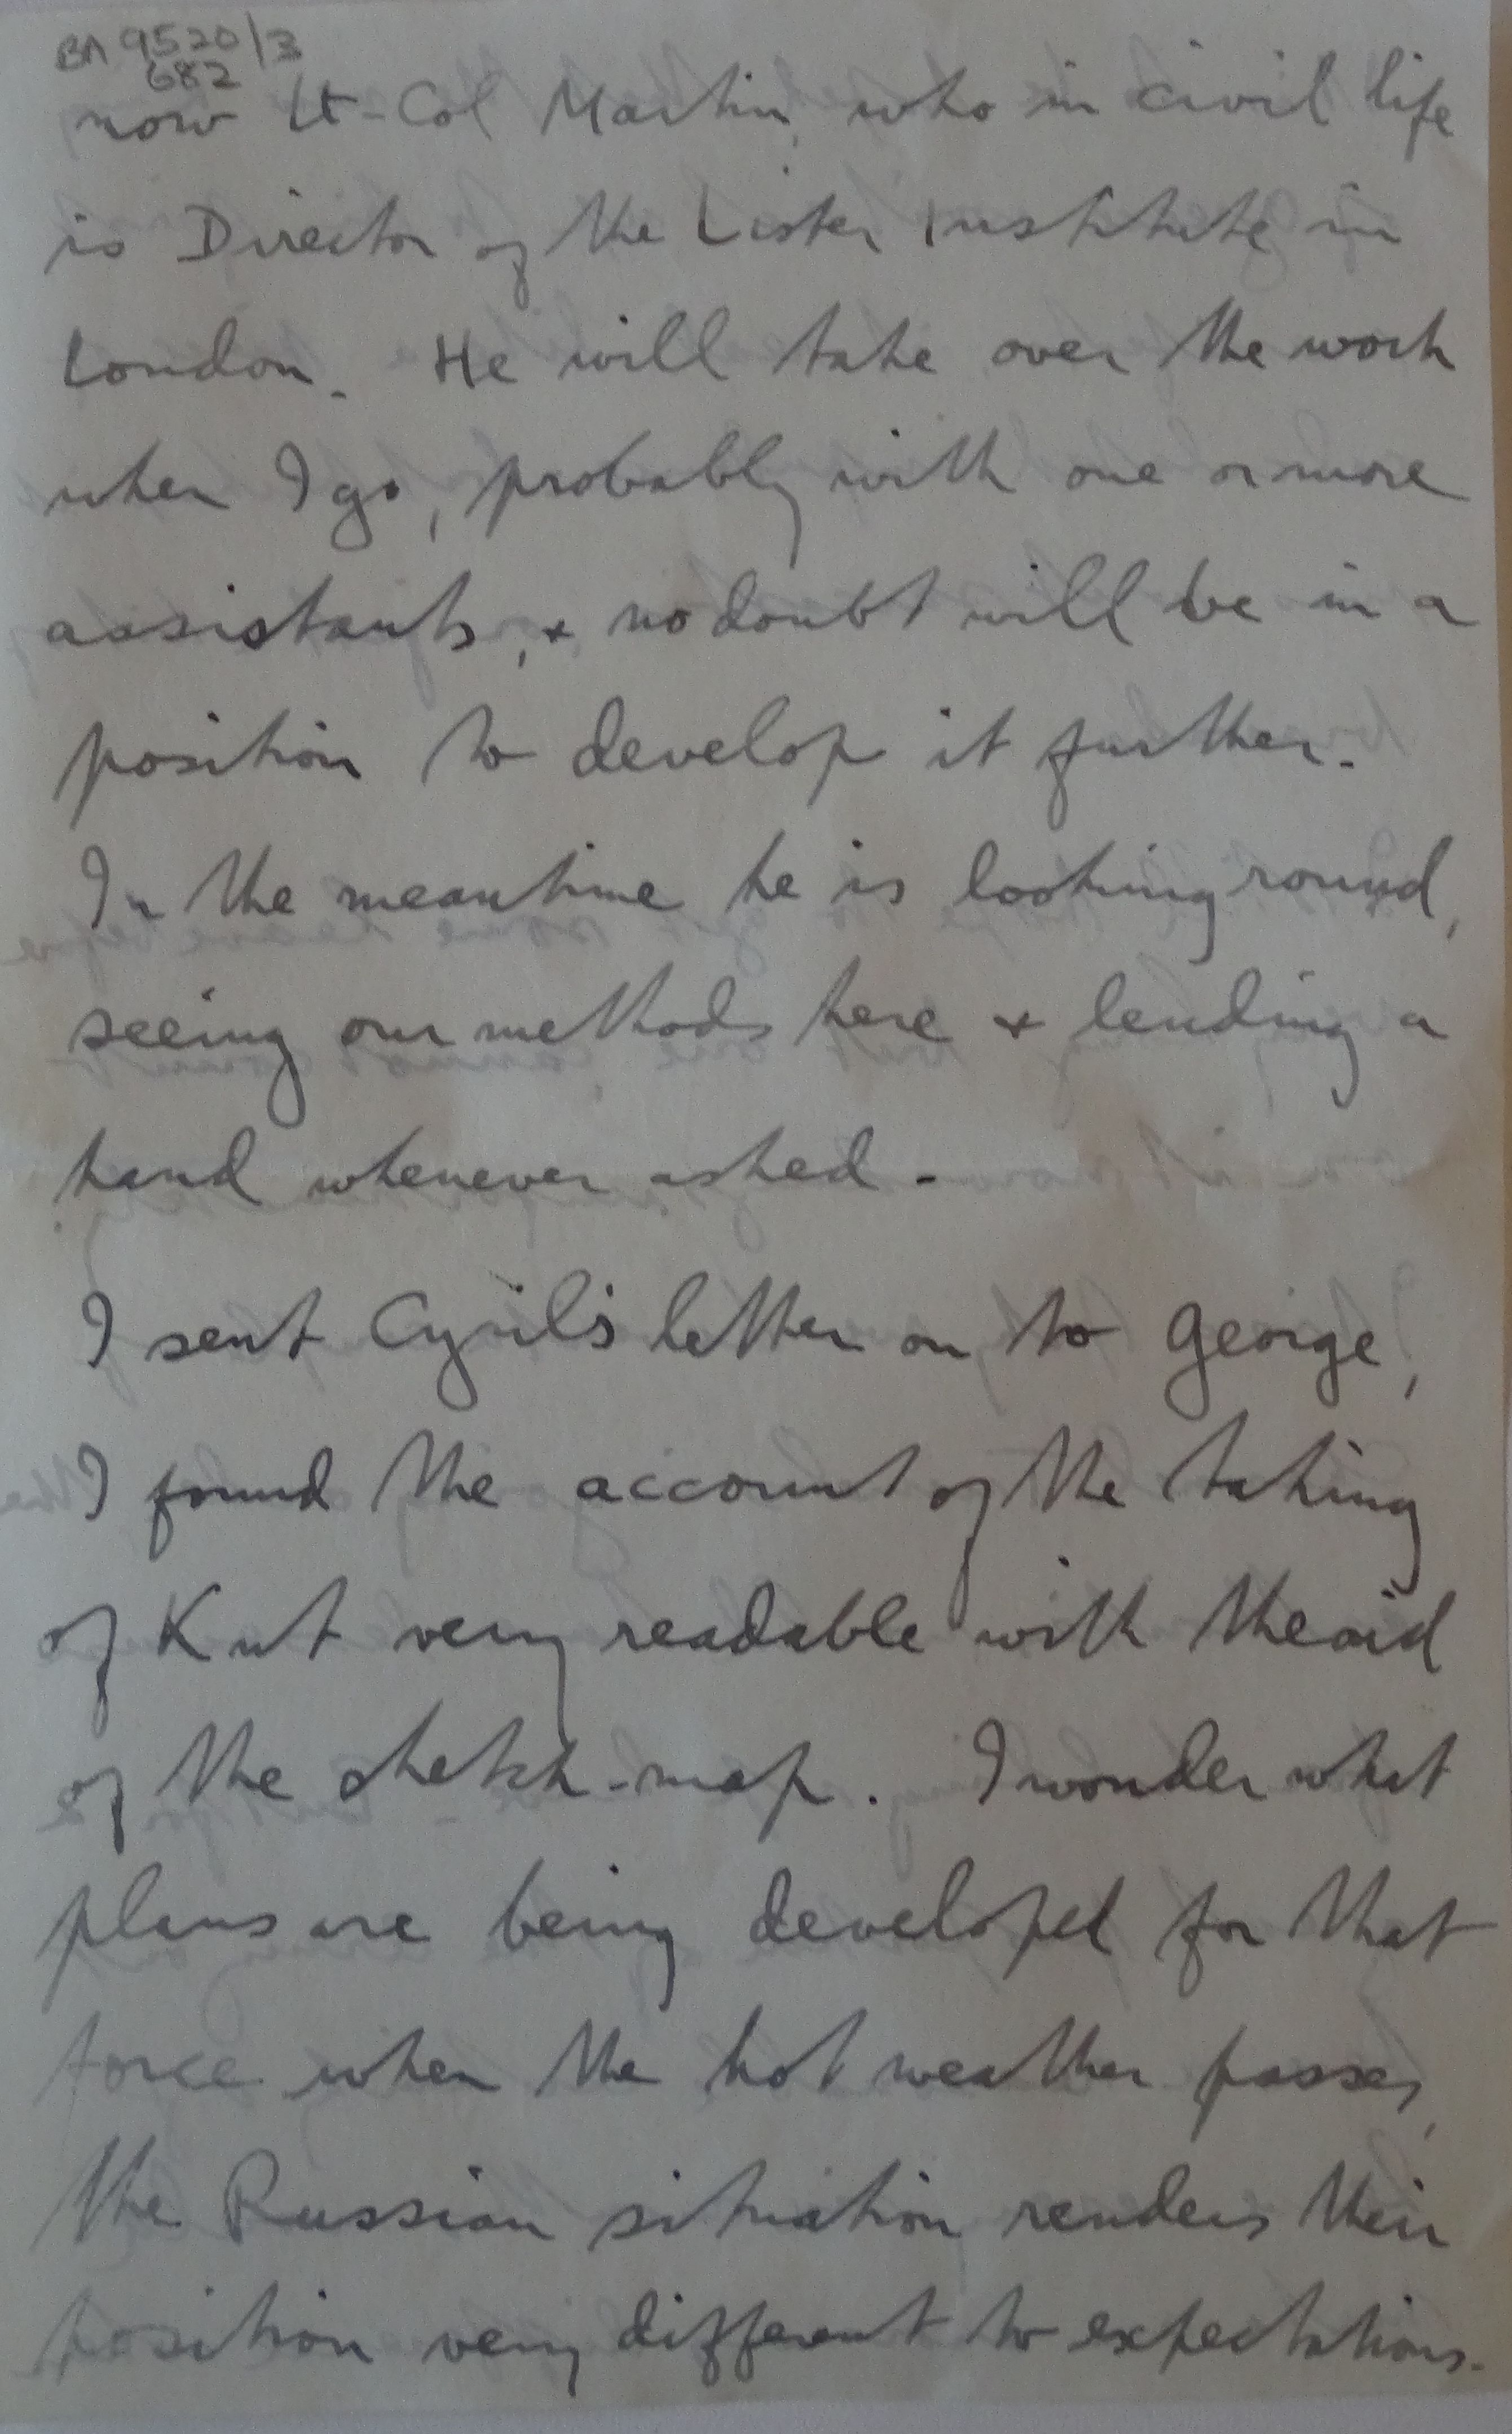 BA 9520/3
682
now Lt-Col Martin, who in civil life
is Director of the Lister Institute in
London. He will take over the work
when I go, probably with one or more
assistants, & no doubt will be in a
position to develop it further.
In the meantime he is looking round,
seeing our methods here & lending a
hand whenever asked.
I sent Cyril's letter on to George,
I found the account of the taking
of Kut very readable with the aid
of the sketch-map. I wonder what
plans are being developed for that
force when the hot weather passes,
the Russian situation renders their
position very different to expectations.